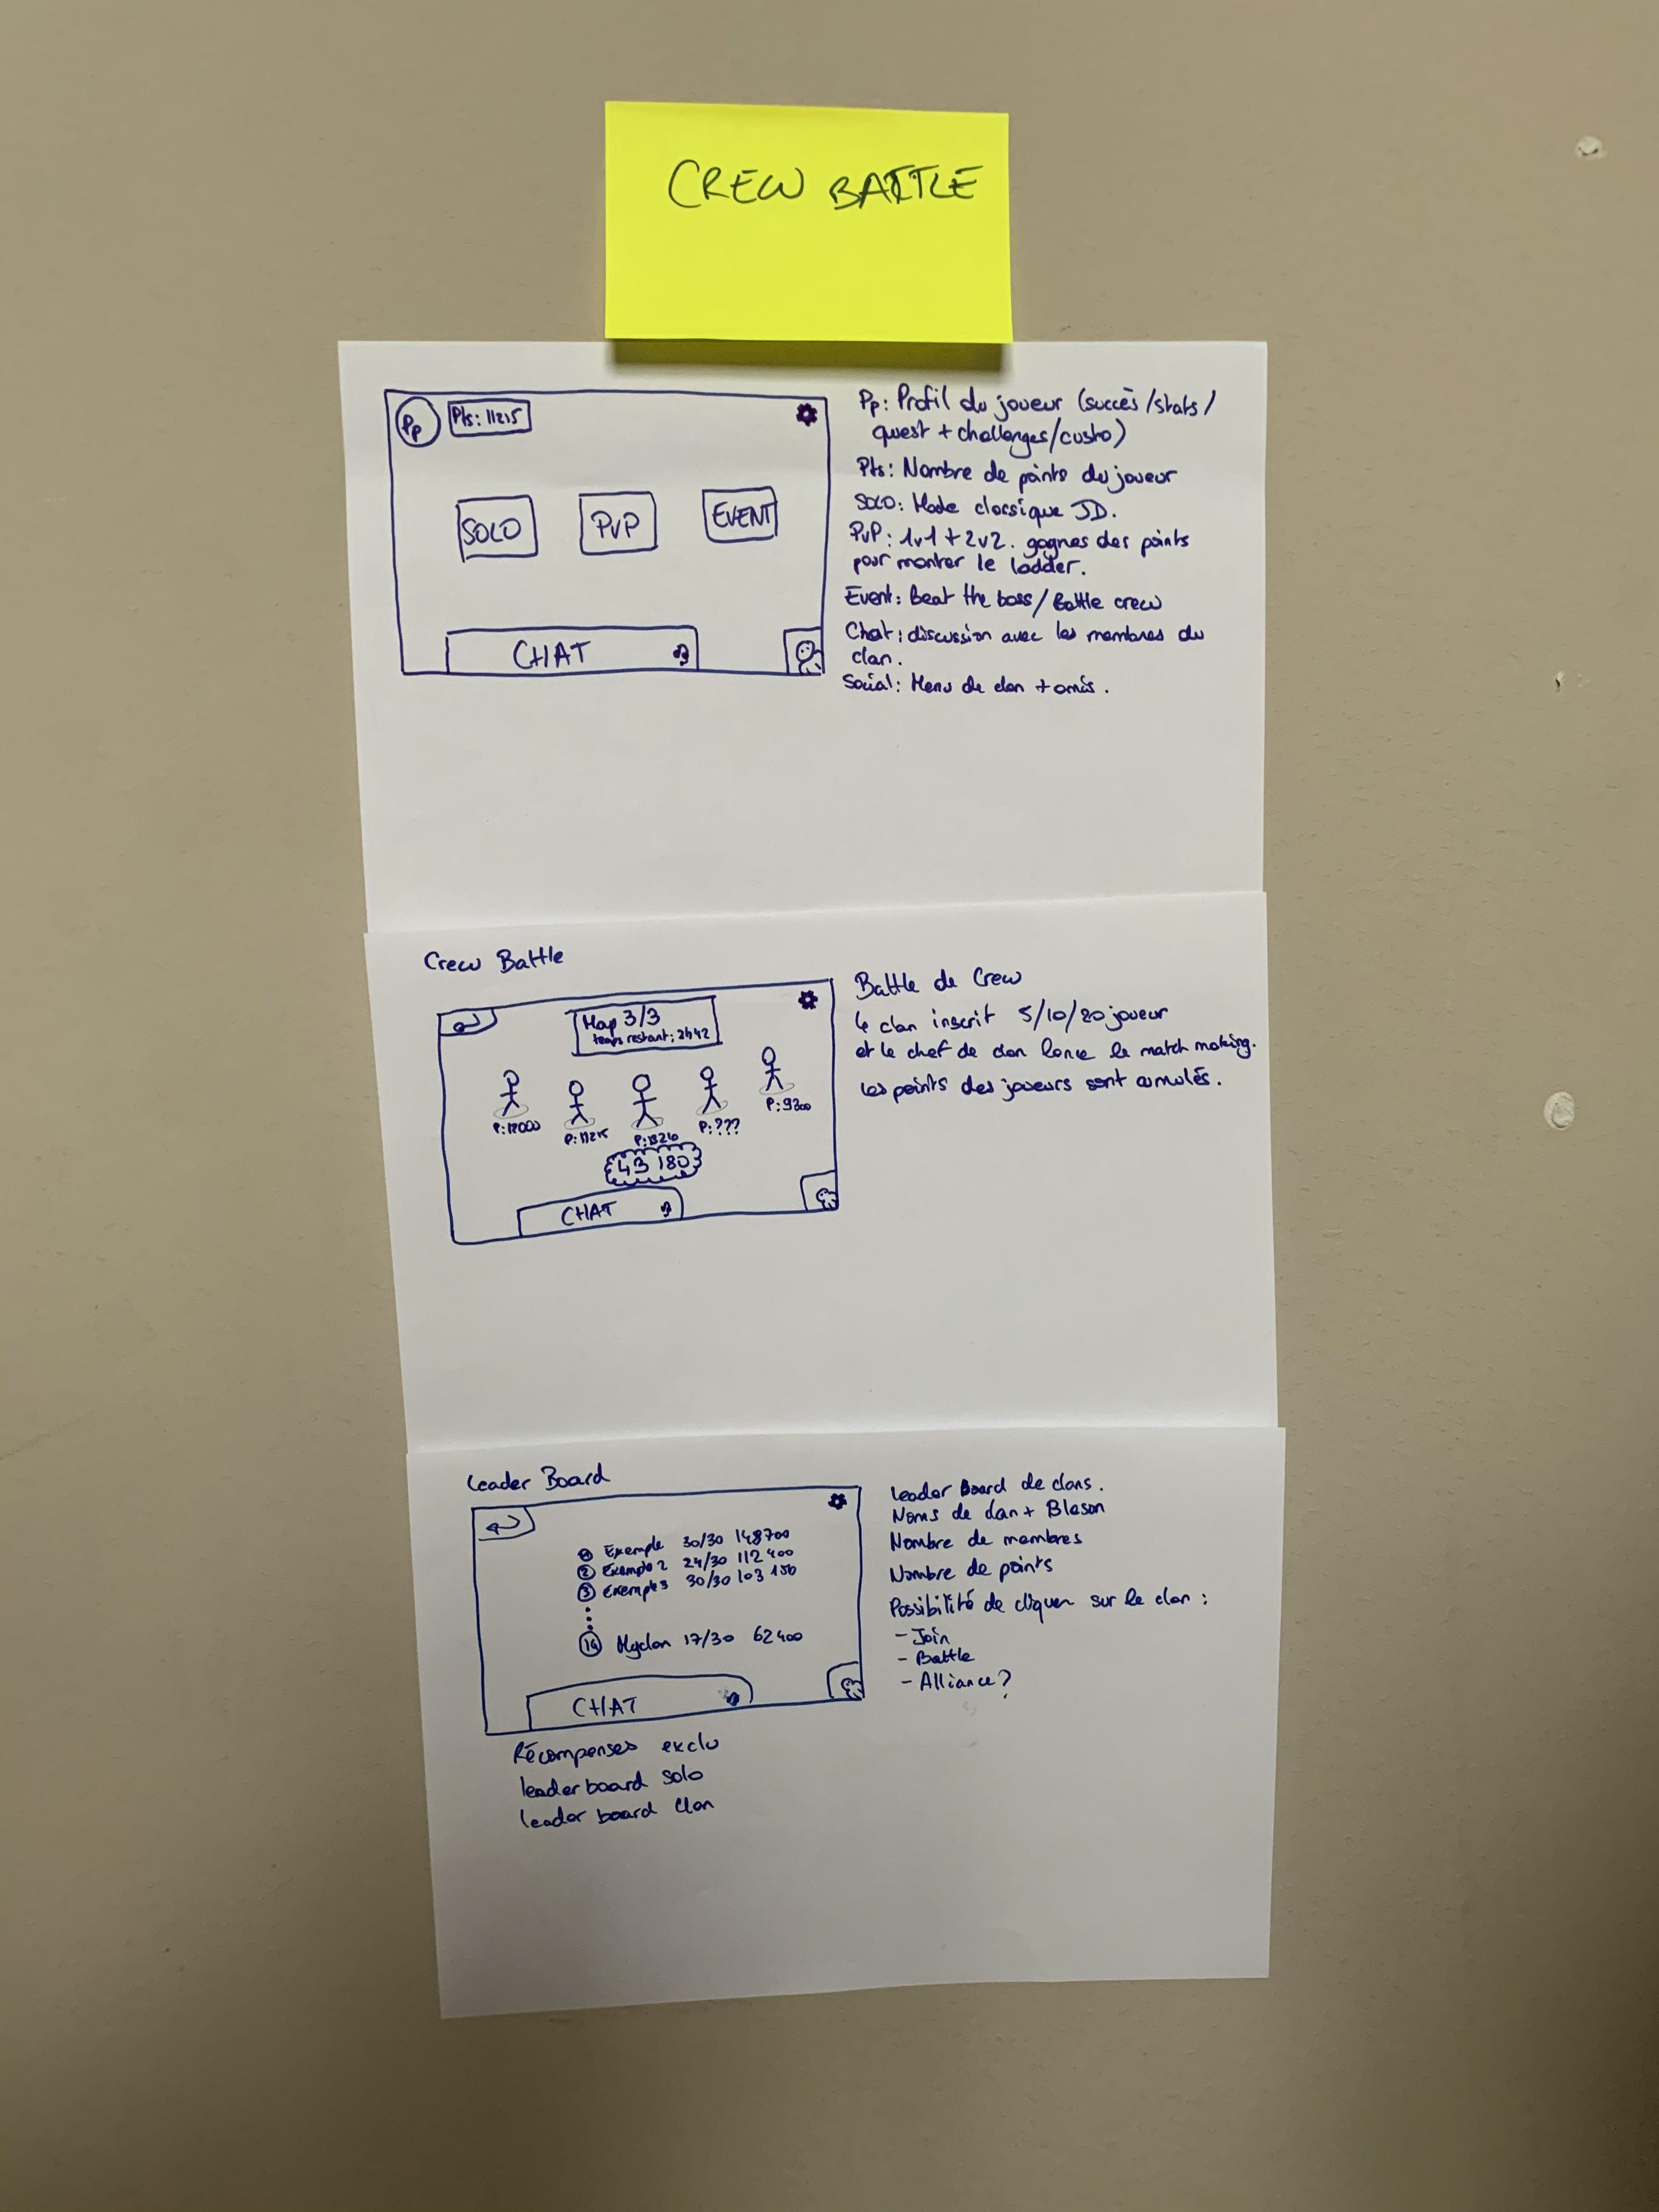 CREW BATTLE
Pp
Pts: 11215
SOLO
PvP
EVENT
CHAT
Pp: Profil du joueur (succès/stats/
quest + challenges/custo)
Pts: Nombre de points du joueur
SOLO: Mode classique JD.
PvP: 1v1 + 2v2. gagnes des points
pour monter le ladder.
Event: Beat the boss/Battle crew
Chat: discussion avec les membres du
clan.
Social: Menu de clan + amis.
Crew Battle
Map 3/3
temps restant: 2h42
P:12000
P:11215
P:???
P:9300
43 180
CHAT
Battle de Crew
Le clan inscrit 5/10/20 joueur
et le chef de clan lance le match making.
Les points des joueurs sont cumulés.
Leader Board
1 Exemple 30/30 148700
2 Exemple 2 24/30 112 400
3 Exemple3 30/30 103 150
14 Myclan 17/30 62400
CHAT
Récompenses exclu
leaderboard solo
leader board clan
Leader Board de clans.
Noms de clan + Blason
Nombre de membres
Nombre de points
Possibilité de cliquer sur le clan :
- Join
- Battle
- Alliance?